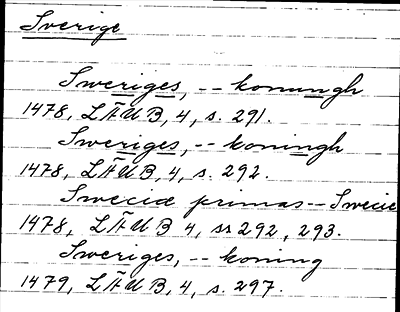 Sverige
Sweriges, -- konungh
1478, LÄUB, 4, s. 291.
Sweriges, -- koningh
1478, LÄUB, 4, s. 292.
Swecie primas -- Swecie
1478, LÄUB 4, ss 292, 293.
Sweriges, -- koning
1479, LÄUB, 4, s. 297.